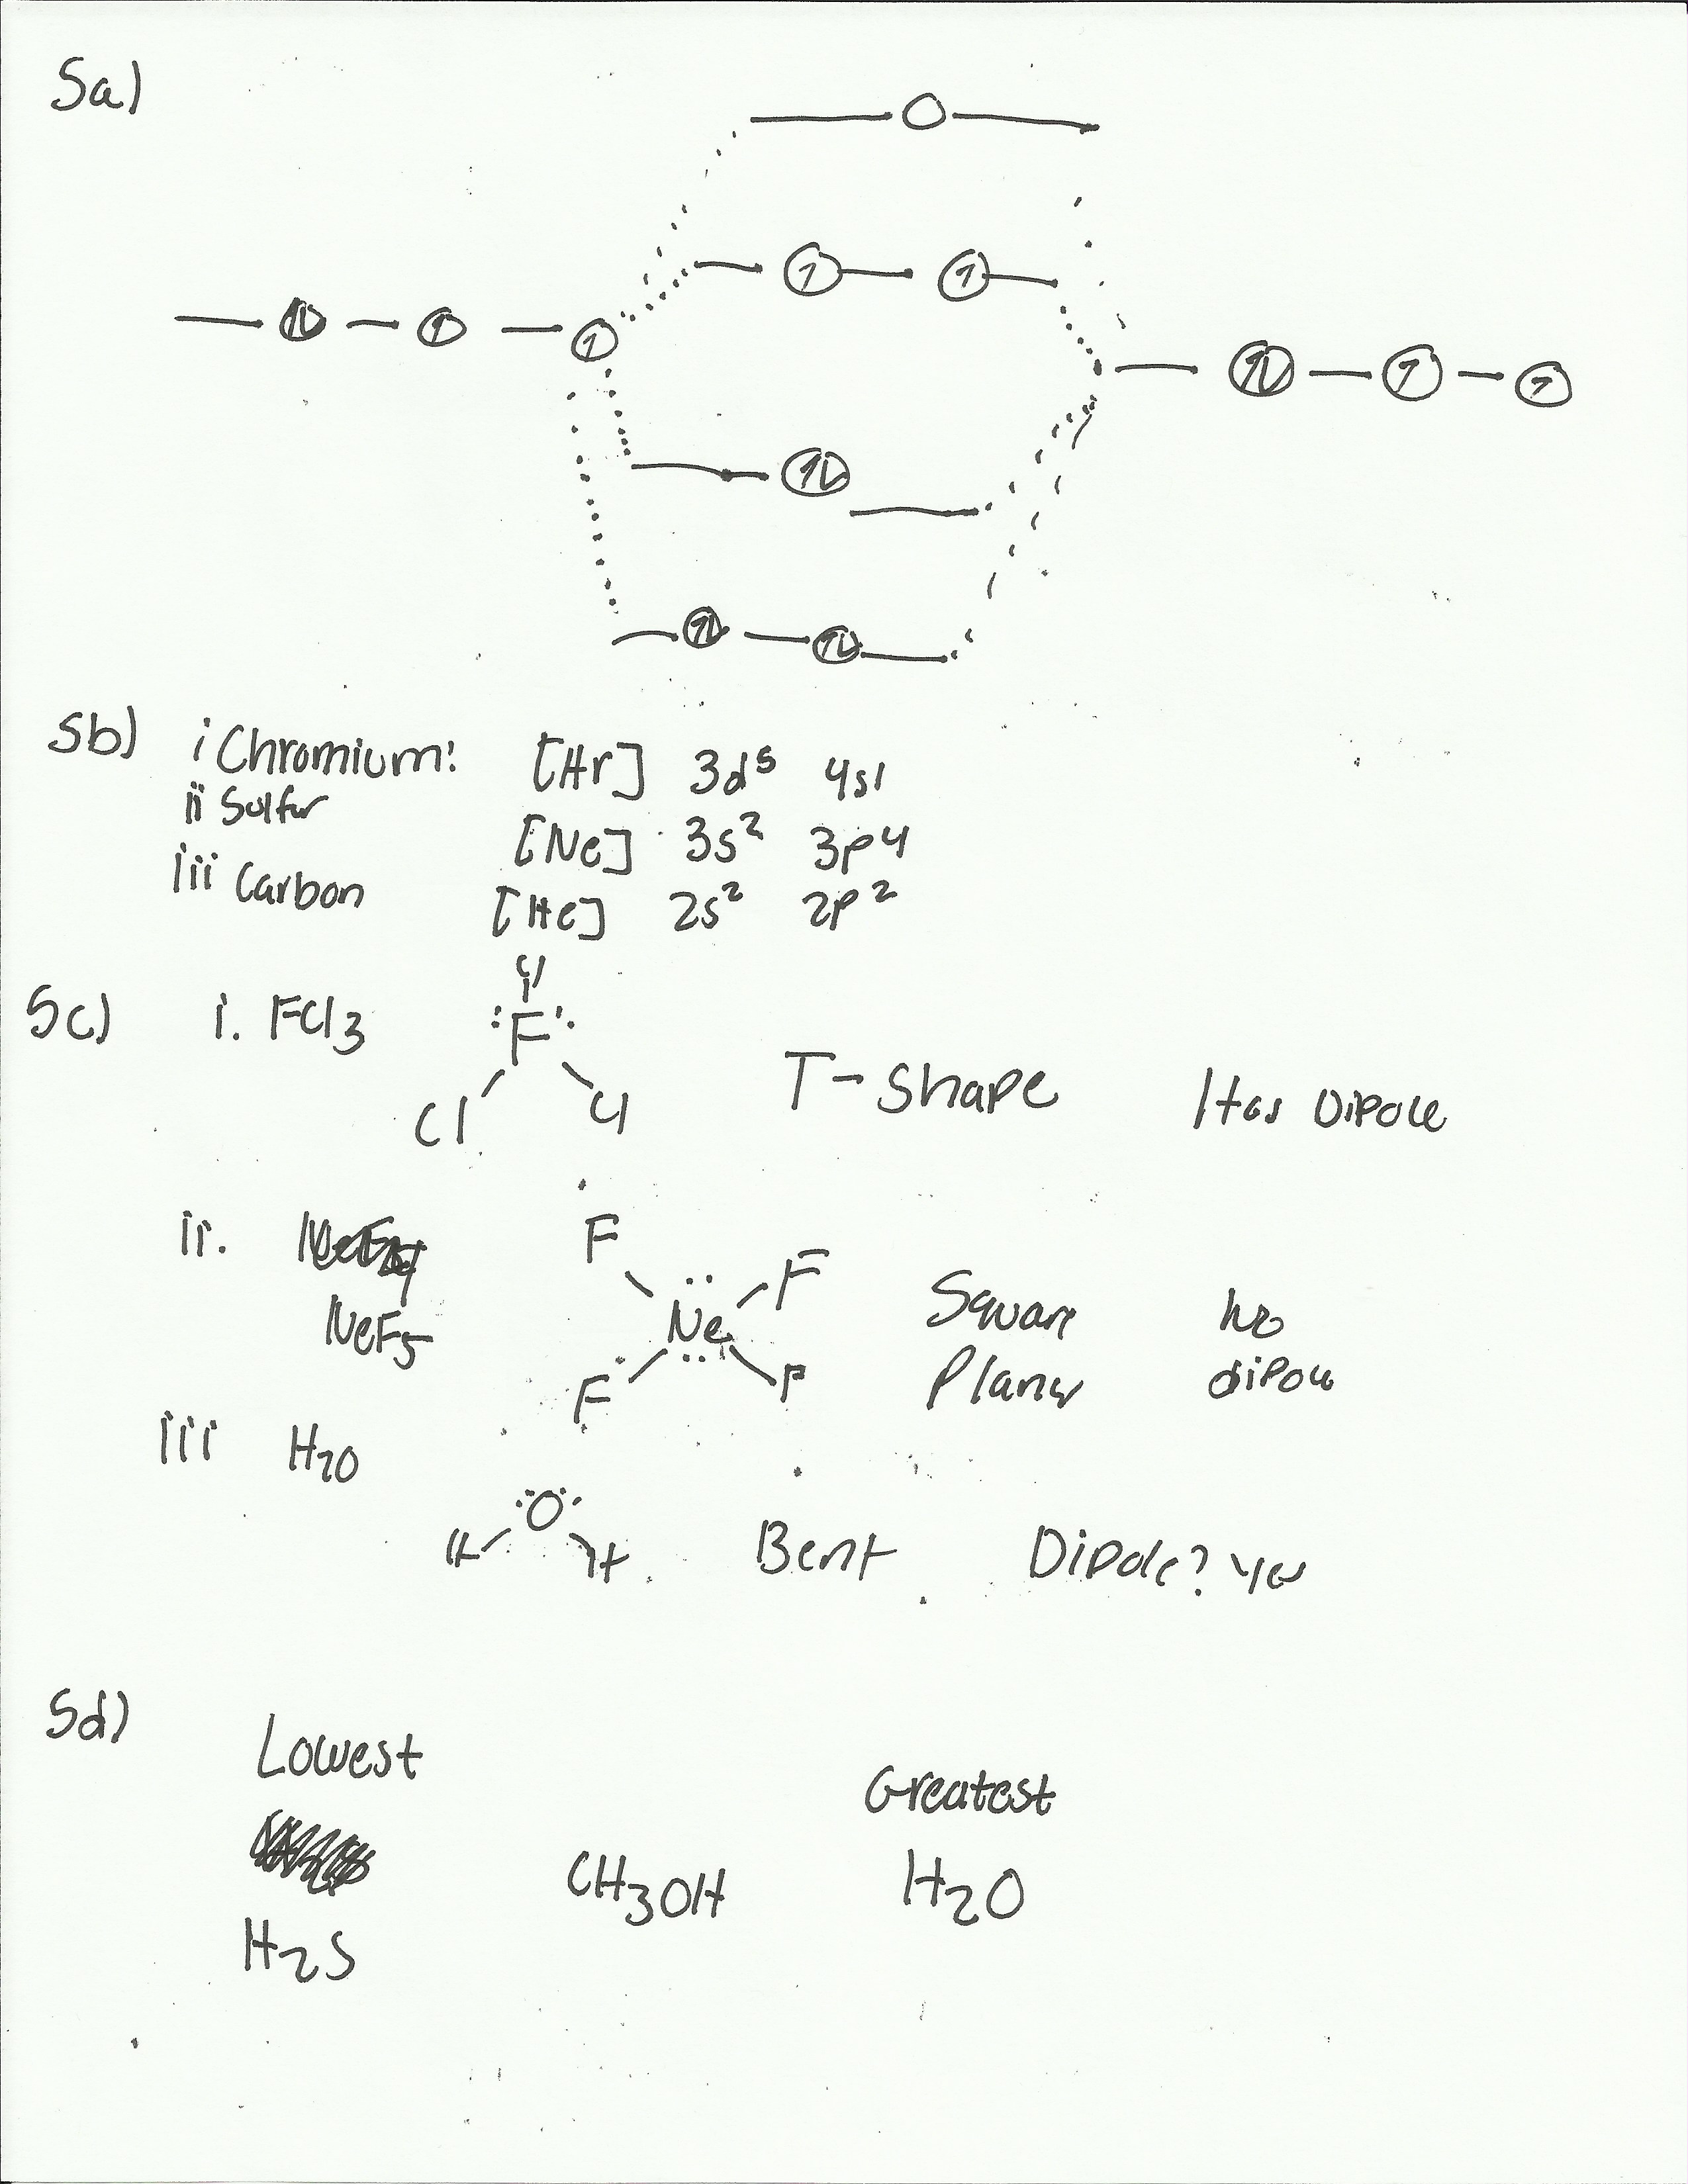 5a)
O
↑ ↑
↑↓ ↑ ↑
↑↓ ↑ ↑
↑↓
↑↓ ↑↓
5b) i Chromium: [Hr] 3d⁵ 4s1
ii Sulfur [Ne] 3s² 3p⁴
iii Carbon [He] 2s² 2p²
5c) i. FCl3
Cl
:F:
Cl Cl
T-Shape Has Dipole
ii.
NeF5
F F
Ne
F F
Square Planar
no dipole
iii H2O
:O:
H H
Bent Dipole? Yes
5d)
Lowest Greatest
CH3OH H2O
H2S